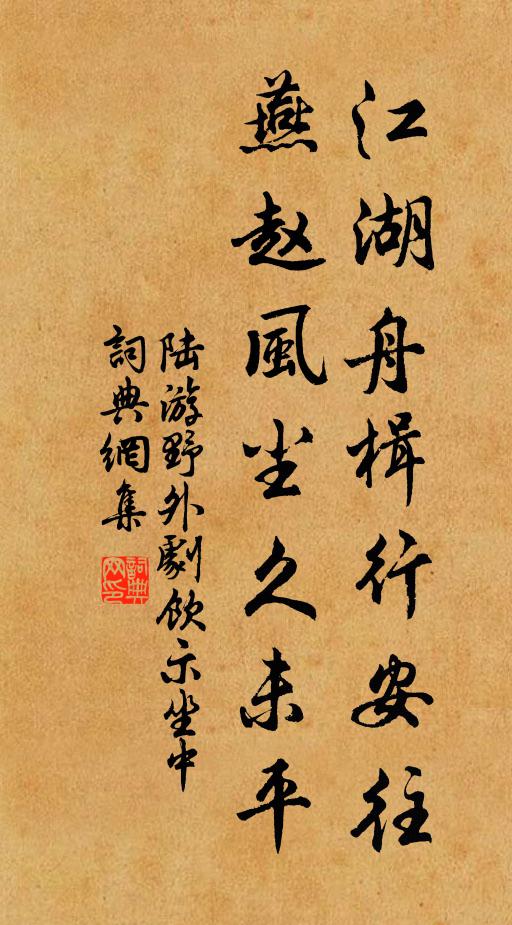 江湖舟楫行安往
燕赵風尘久未平
陆游野外劇飲示坐中
詞典網集
詞典网印